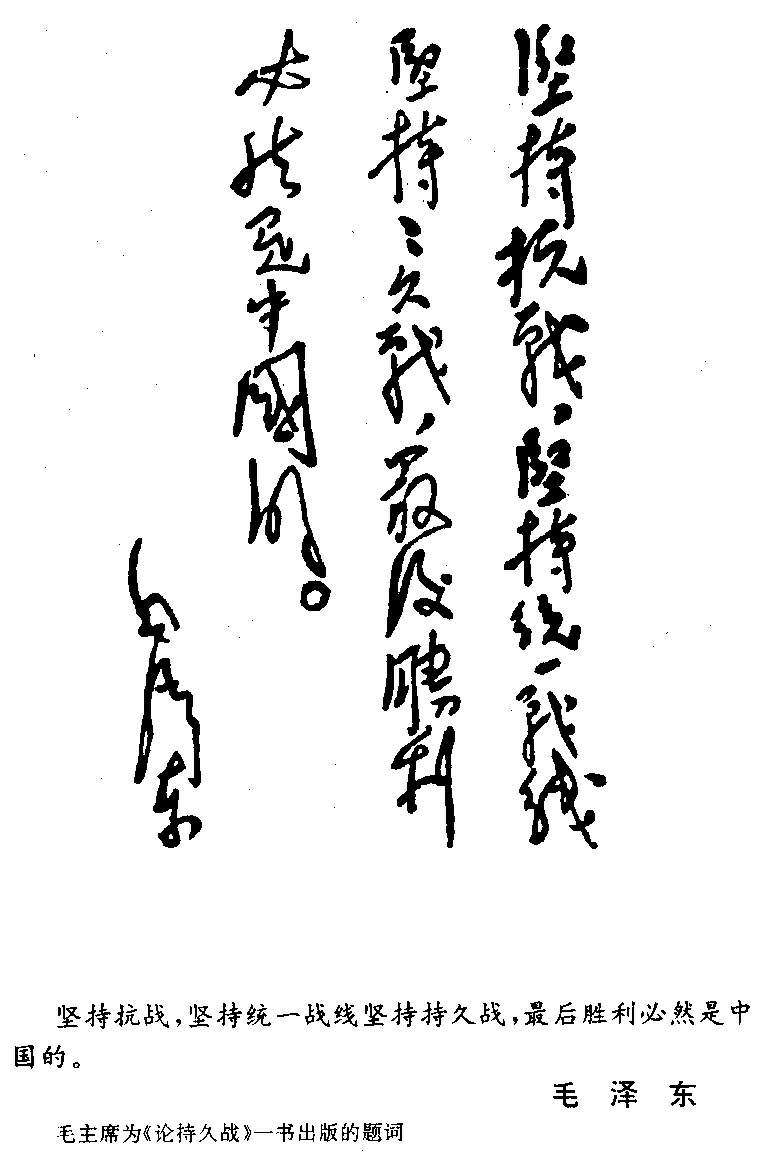 堅持抗戰，堅持統一戰綫
堅持〻久戰，最後勝利
必然是中國的。
毛澤东
坚持抗战，坚持统一战线坚持持久战，最后胜利必然是中
国的。
毛 泽 东
毛主席为《论持久战》一书出版的题词